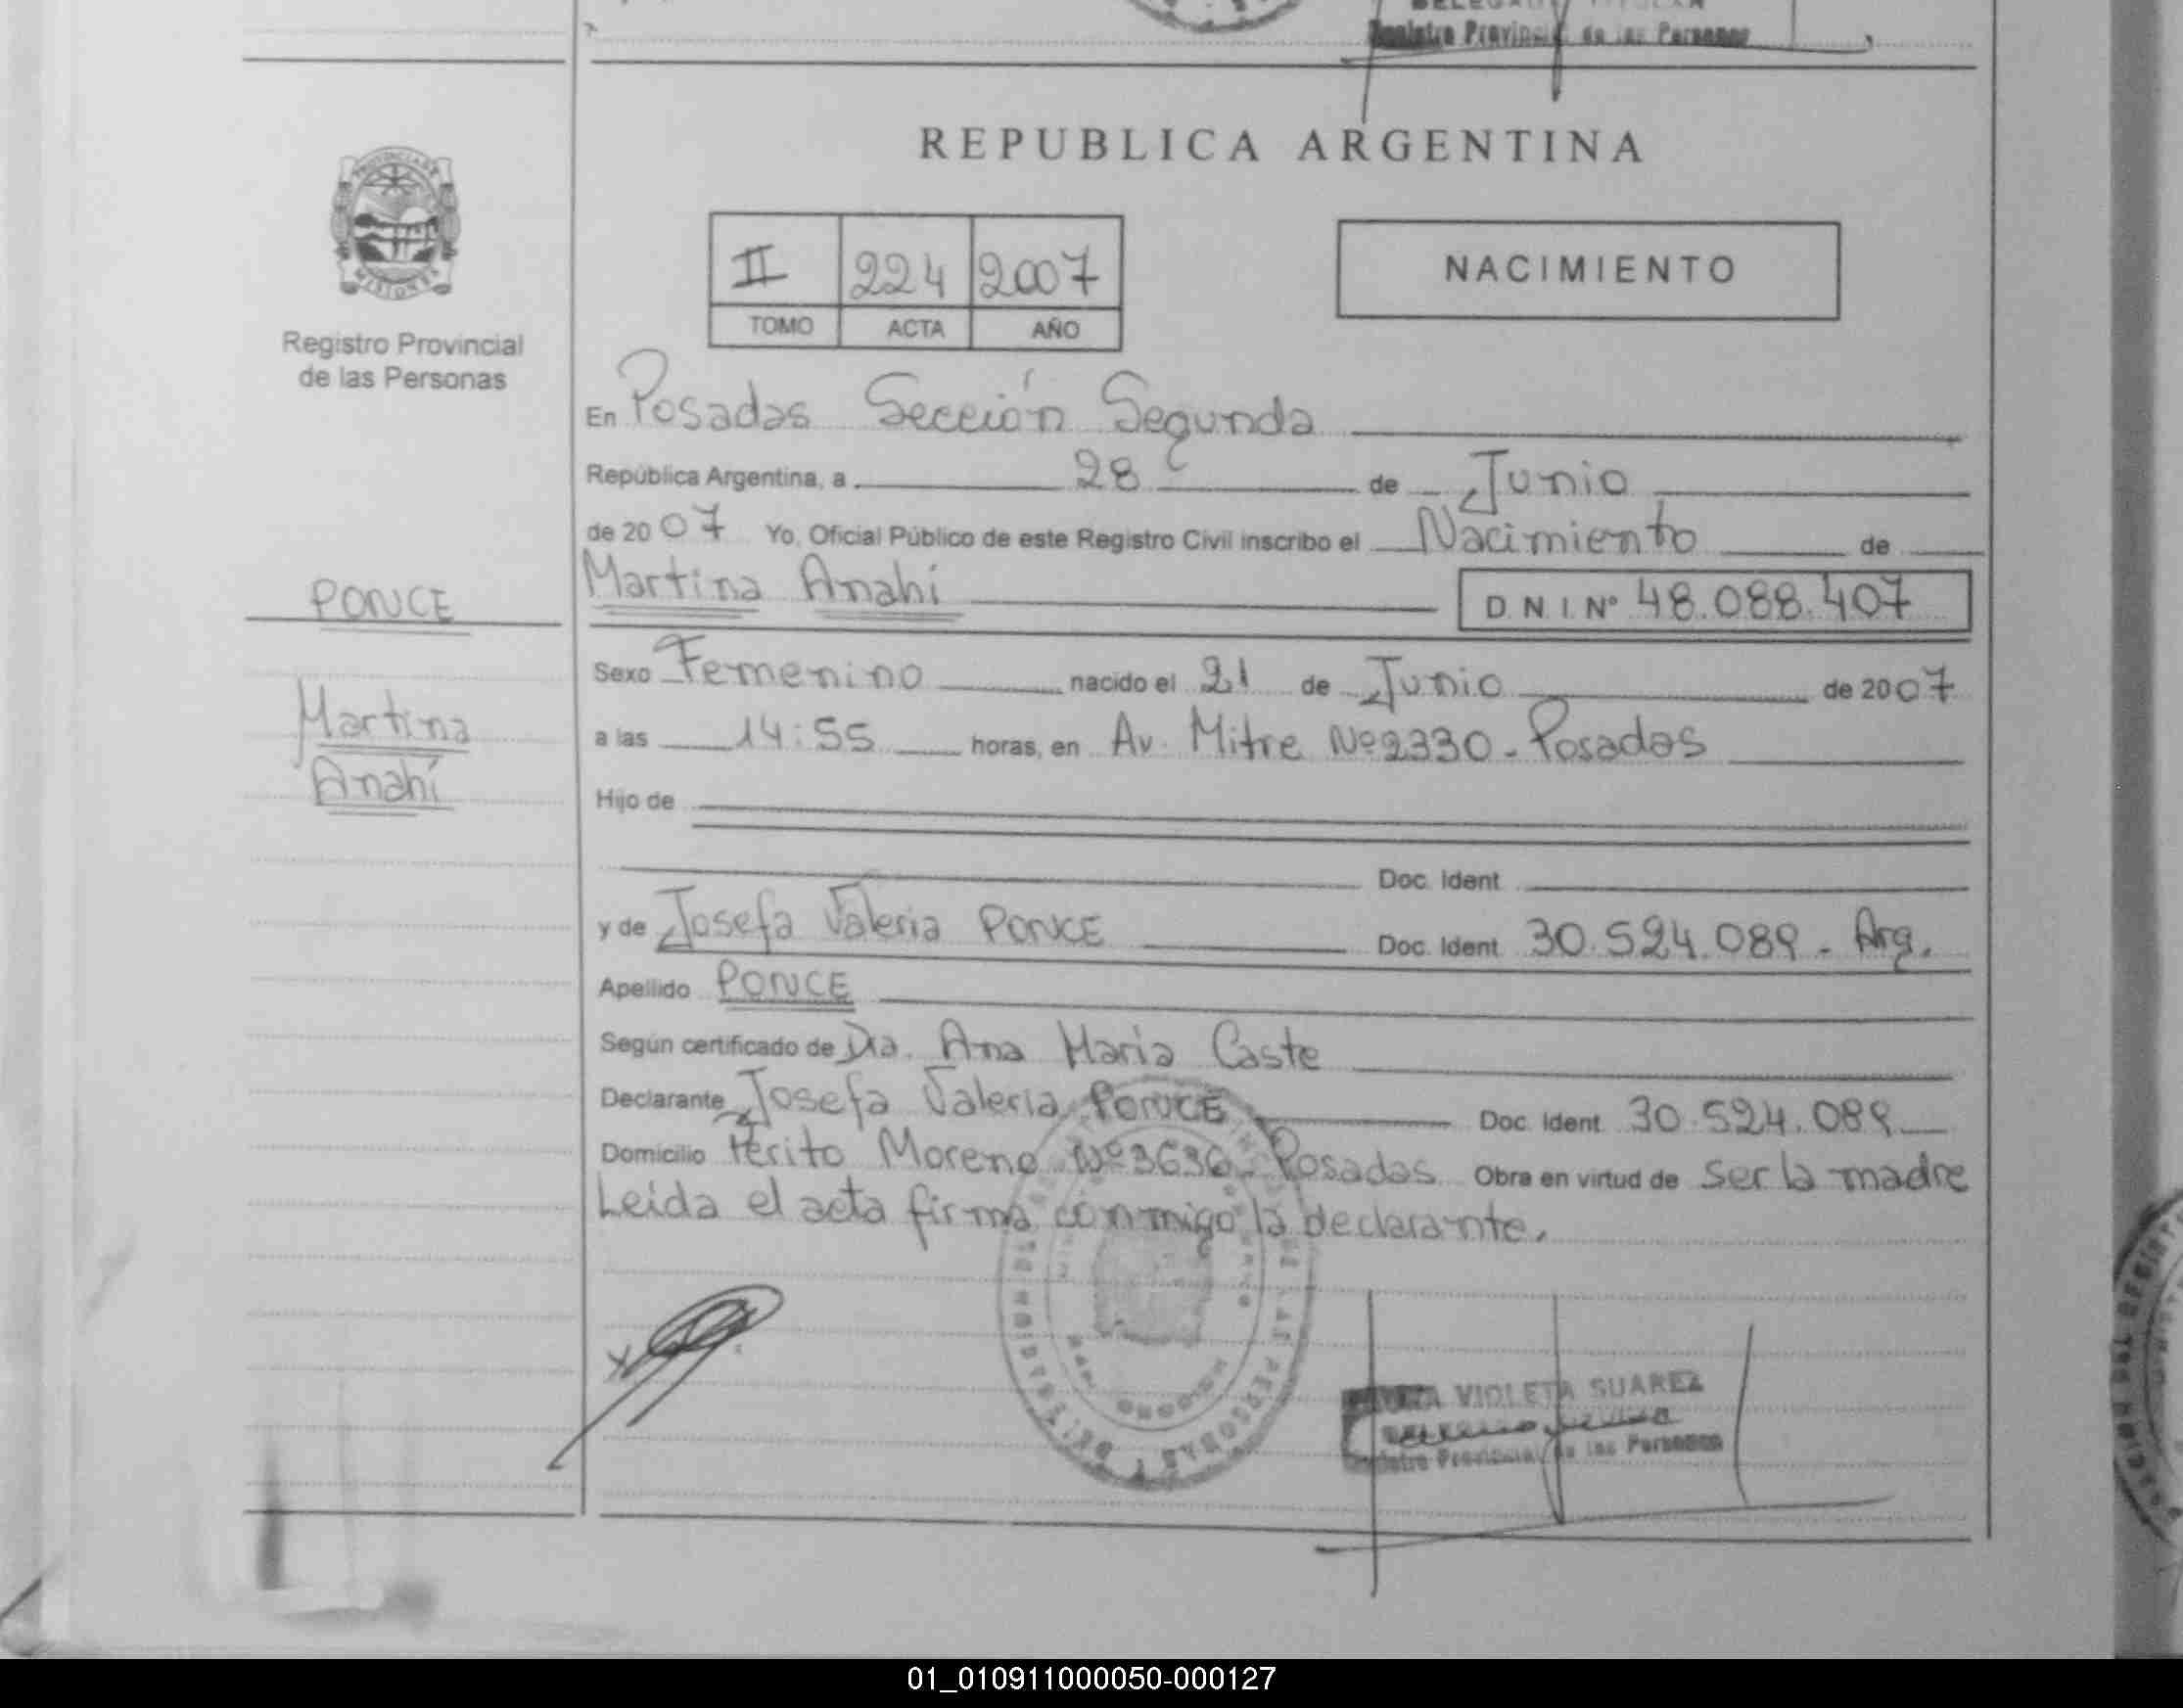 Registro Provincial de las Personas
REPUBLICA ARGENTINA
PROVINCIA DE
MISIONES
Registro Provincial
de las Personas
II 224 2007
TOMO ACTA AÑO
NACIMIENTO
En Posadas Sección Segunda
República Argentina, a 28 de Junio
de 2007 Yo, Oficial Público de este Registro Civil inscribo el Nacimiento de
PONCE
Martina Anahí D.N.I.Nº 48.088.407
Martina
Anahí
Sexo Femenino nacido el 21 de Junio de 2007
a las 14:55 horas, en Av. Mitre Nº2330 - Posadas
Hijo de
Doc. Ident
y de Josefa Valeria PONCE Doc. Ident 30.524.089 - Arg.
Apellido PONCE
Según certificado de Dra. Ana Maria Caste
Declarante Josefa Valeria PONCE Doc. Ident. 30.524.089
Domicilio Perito Moreno Nº3636 - Posadas Obra en virtud de ser la madre
Leida el acta firma conmigo la declarante.
VIOLETA SUAREZ
Registro Provincial de las Personas
01_010911000050-000127